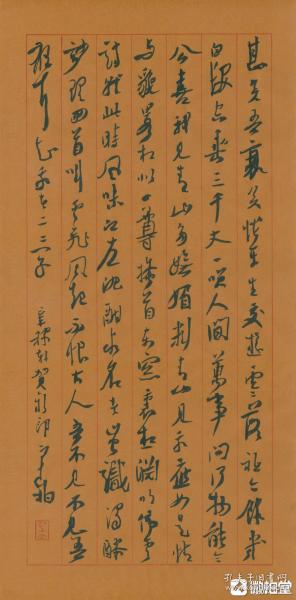 甚矣吾衰矣悵平生交遊零落祇今餘幾
白髮空垂三千丈一笑人間萬事問何物能令
公喜我見青山多嫵媚料青山見我應如是情
與貌略相似一尊搔首東窗裏想淵明停雲
詩就此時風味江左沈酣求名者豈識濁醪
妙理回首叫雲飛風起不恨古人吾不見不見吾
狂耳知我者二三子
辛稼軒賀新郎